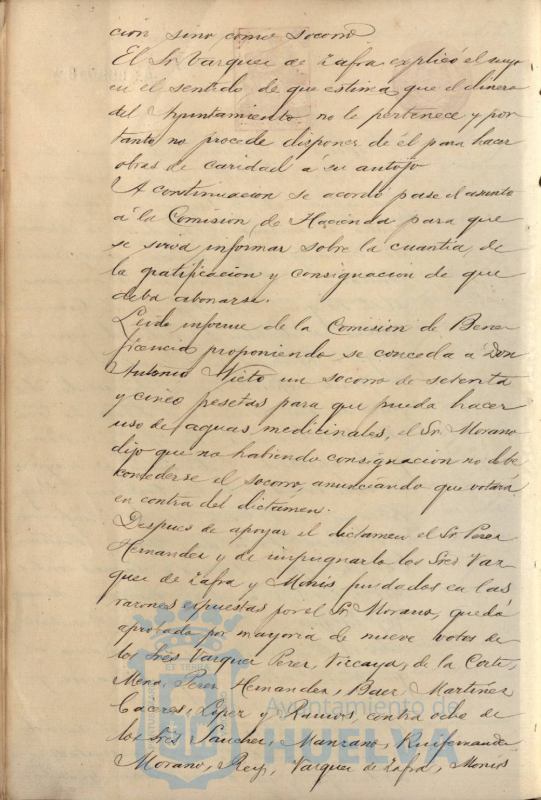 cion sino como socorro
El Sr Vazquez de Zafra explicó el suyo
en el sentido de que estima que el dinero
del Ayuntamiento no le pertenece y por
tanto no procede disponer de él para hacer
obras de caridad á su antojo
A continuacion se acordó pase el asunto
á la Comision de Hacienda para que
se sirva informar sobre la cuantia de
la gratificacion y consignacion de que
deba abonarse.
Leido informe de la Comision de Bene-
ficencia proponiendo se conceda á Don
Antonio Nieto un socorro de setenta
y cinco pesetas para que pueda hacer
uso de aguas medicinales, el Sr. Morano
dijo que no habiendo consignacion no debe
concederse el socorro, anunciando que votará
en contra del dictamen.
Despues de apoyar el dictamen el Sr. Perez
Hernandez y de impugnarlo los Sres Vaz-
quez de Zafra y Monis fundados en las
razones expuestas por el Sr. Morano, quedó
aprobado por mayoria de nueve votos de
los Sres Vazquez Perez, Vizcaya, de la Corte,
Mora, Perez Hernandez, Baez, Martinez
Caceres, Lopez y Ramos, contra ocho de
los Sres Sanchez, Manzano, Ruifernandez
Morano, Rey, Vazquez de Zafra, Monis
Ayuntamiento de
HUELVA